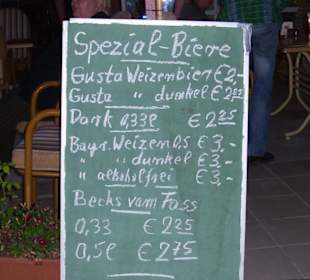 Spezial-Biere
Gusta Weizenbier € 2,-
Gusta " dunkel € 2 25
Dark 0,33l € 2 25
Bayr. Weizen 0,5 € 3,-
" " dunkel € 3,-
" alkoholfrei € 3,-
Becks vom Fass
0,33 € 2 25
0,5l € 2 75